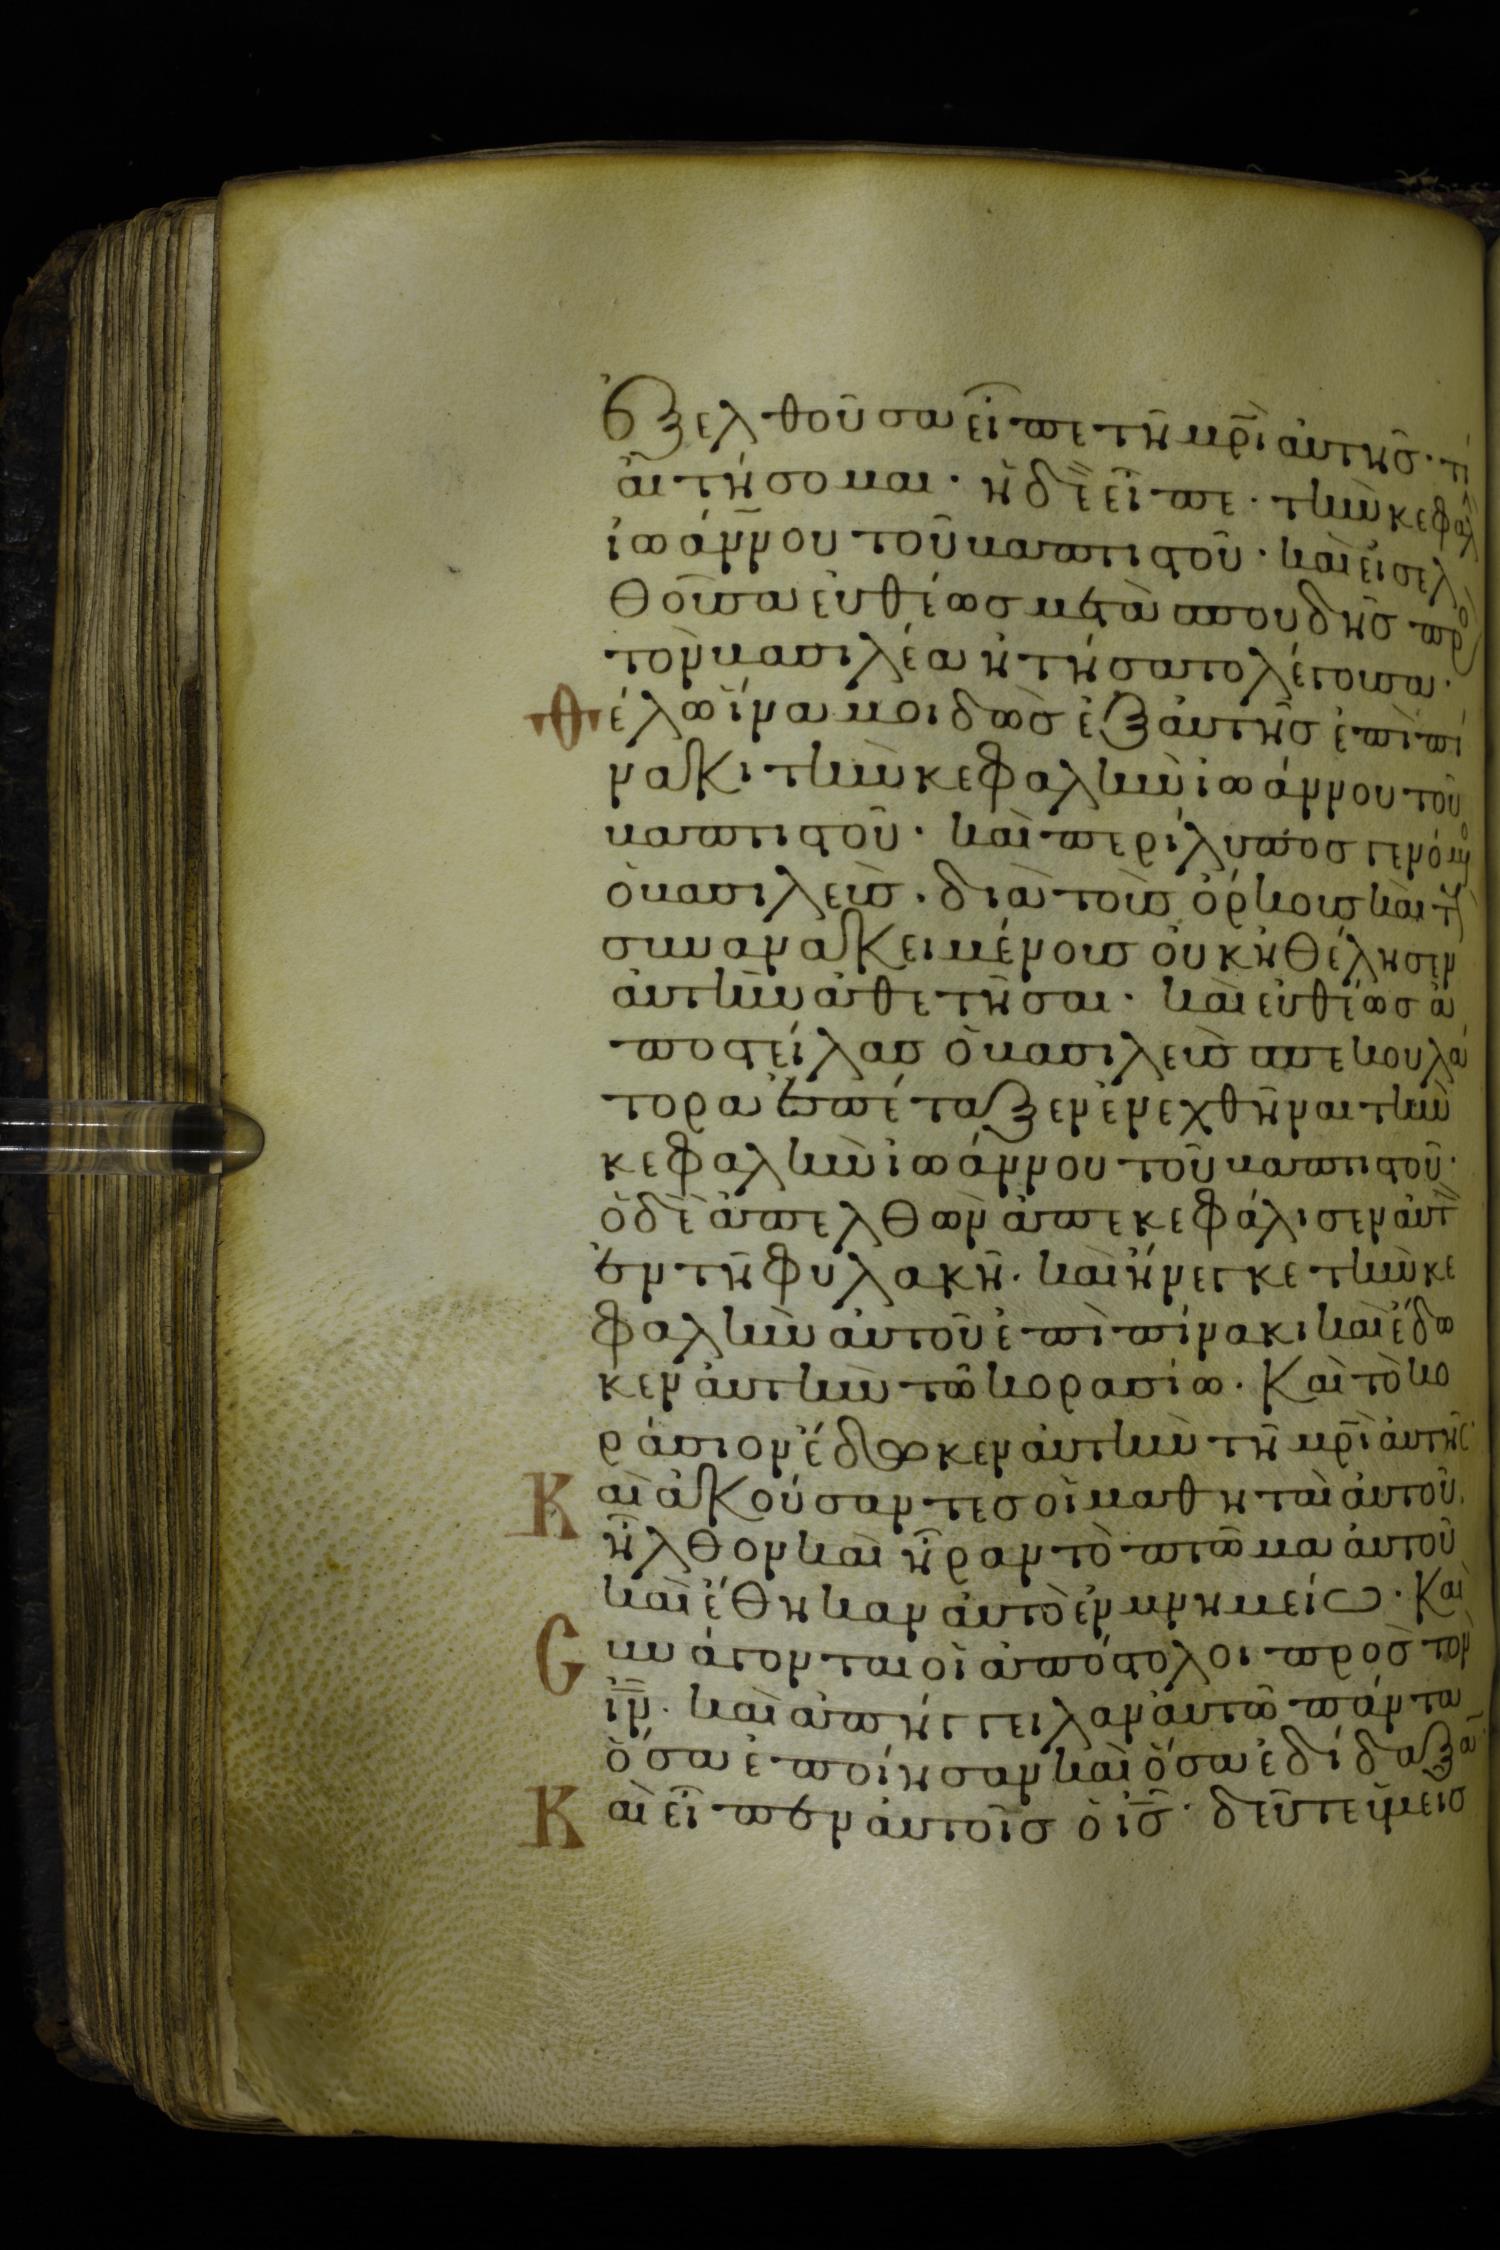 ἐξελθοῦσα εἶπε τῆ μρ̅ὶ αὐτῆς· τί
αἰτήσομαι· ἡ δὲ εἶπε· τὴν κεφαλ
ἰωάννου τοῦ βαπτιστοῦ· καὶ εἰσελ
θοῦσα εὐθέως μετὰ σπουδῆς πρὸ
τὸν βασιλέα ἠτήσατο λέγουσα·
θέλω ἵνα μοι δὼς ἐξ αὐτῆς ἐπὶ πί
νακι τὴν κεφαλὴν ἰωάννου τοῦ
βαπτιστοῦ· καὶ περίλυπος γενόμ
ὁ βασιλεὺς· διὰ τοὺς ὅρκους καὶ τ
συνανακειμένους οὐκ ἠθέλησεν
αὐτὴν ἀθετῆσαι· καὶ εὐθέως ἀ
ποστείλας ὁ βασιλεὺς σπεκουλά
τορα ἐπέταξεν ἐνεχθῆναι τὴν
κεφαλὴν ἰωάννου τοῦ βαπτιστοῦ·
ὁ δὲ ἀπελθὼν ἀπεκεφάλισεν αὐτ
ἐν τῆ φυλακῆ· καὶ ἤνεγκε τὴν κε
φαλὴν αὐτοῦ ἐπὶ πίνακι καὶ ἔδω
κεν αὐτὴν τῶ κορασίω· Καὶ τὸ κο
ράσιον ἔδωκεν αὐτὴν τῆ μρ̅ὶ αὐτῆς
Καὶ ἀκούσαντες οἱ μαθηταὶ αὐτοῦ.
ἦλθον καὶ ἦραν τὸ πτῶμα αὐτοῦ
καὶ ἔθηκαν αὐτὸ ἐν μνημείω· Καὶ
Συνάγονται οἱ ἀπόστολοι πρὸς τὸν
ἰν̅· καὶ ἀπήγγειλαν αὐτῶ πάντα
ὅσα ἐποίησαν καὶ ὅσα ἐδίδαξα
Καὶ εἶπεν αὐτοῖς ὁ ἰς̅· δεῦτε ὑμεῖς